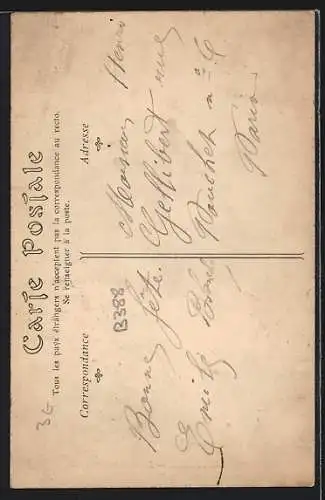 Carte Postale
Tous les pays étrangers n'acceptent pas la correspondance au recto.
Se renseigner à la poste.
Correspondance
Adresse
3€
B388
Bonne fête.
Emile
Monsieur Henri
rue
n° 6
Paris